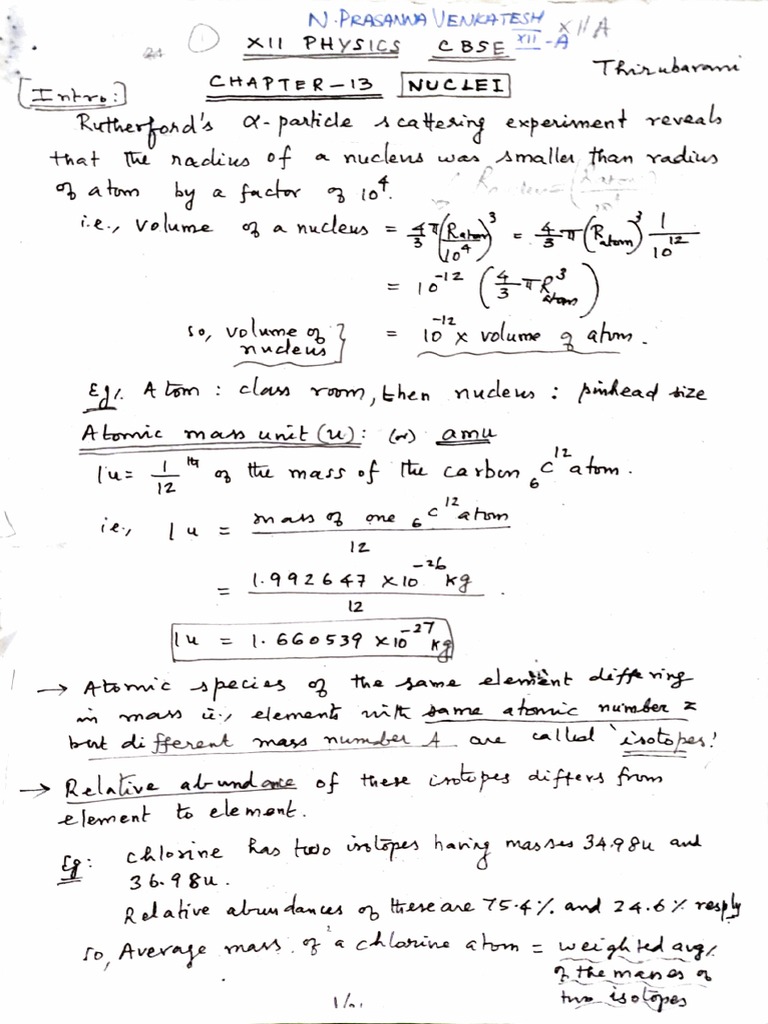 N. PRASANNA VENKATESH
XII-A XII A
1 XII PHYSICS CBSE
Thirubarani
CHAPTER-13 NUCLEI
[Intro:]
Rutherford's α-particle scattering experiment reveals
that the radius of a nucleus was smaller than radius
of atom by a factor of 10⁴.
i.e., volume of a nucleus = 4/3 π (R_atom/10⁴)³ = 4/3 π (R_atom)³ 1/10¹²
= 10⁻¹² (4/3 π R³_atom)
so, volume of nucleus } = 10⁻¹² x volume of atom.
Eg/. Atom : class room, then nucleus : pinhead size
Atomic mass unit (u): (or) amu
1u = 1/12 th of the mass of the carbon ₆C¹² atom.
i.e., 1u = mass of one ₆C¹² atom / 12
= 1.992647 x 10⁻²⁶ kg / 12
1u = 1.660539 x 10⁻²⁷ kg
→ Atomic species of the same element differing
in mass i.e., elements with same atomic number z
but different mass number A are called 'isotopes'.
→ Relative abundance of these isotopes differs from
element to element.
Eg: chlorine has two isotopes having masses 34.98u and
36.98u.
Relative abundances of these are 75.4% and 24.6% resply
so, Average mass of a chlorine atom = weighted avg/.
of the masses of
two isotopes